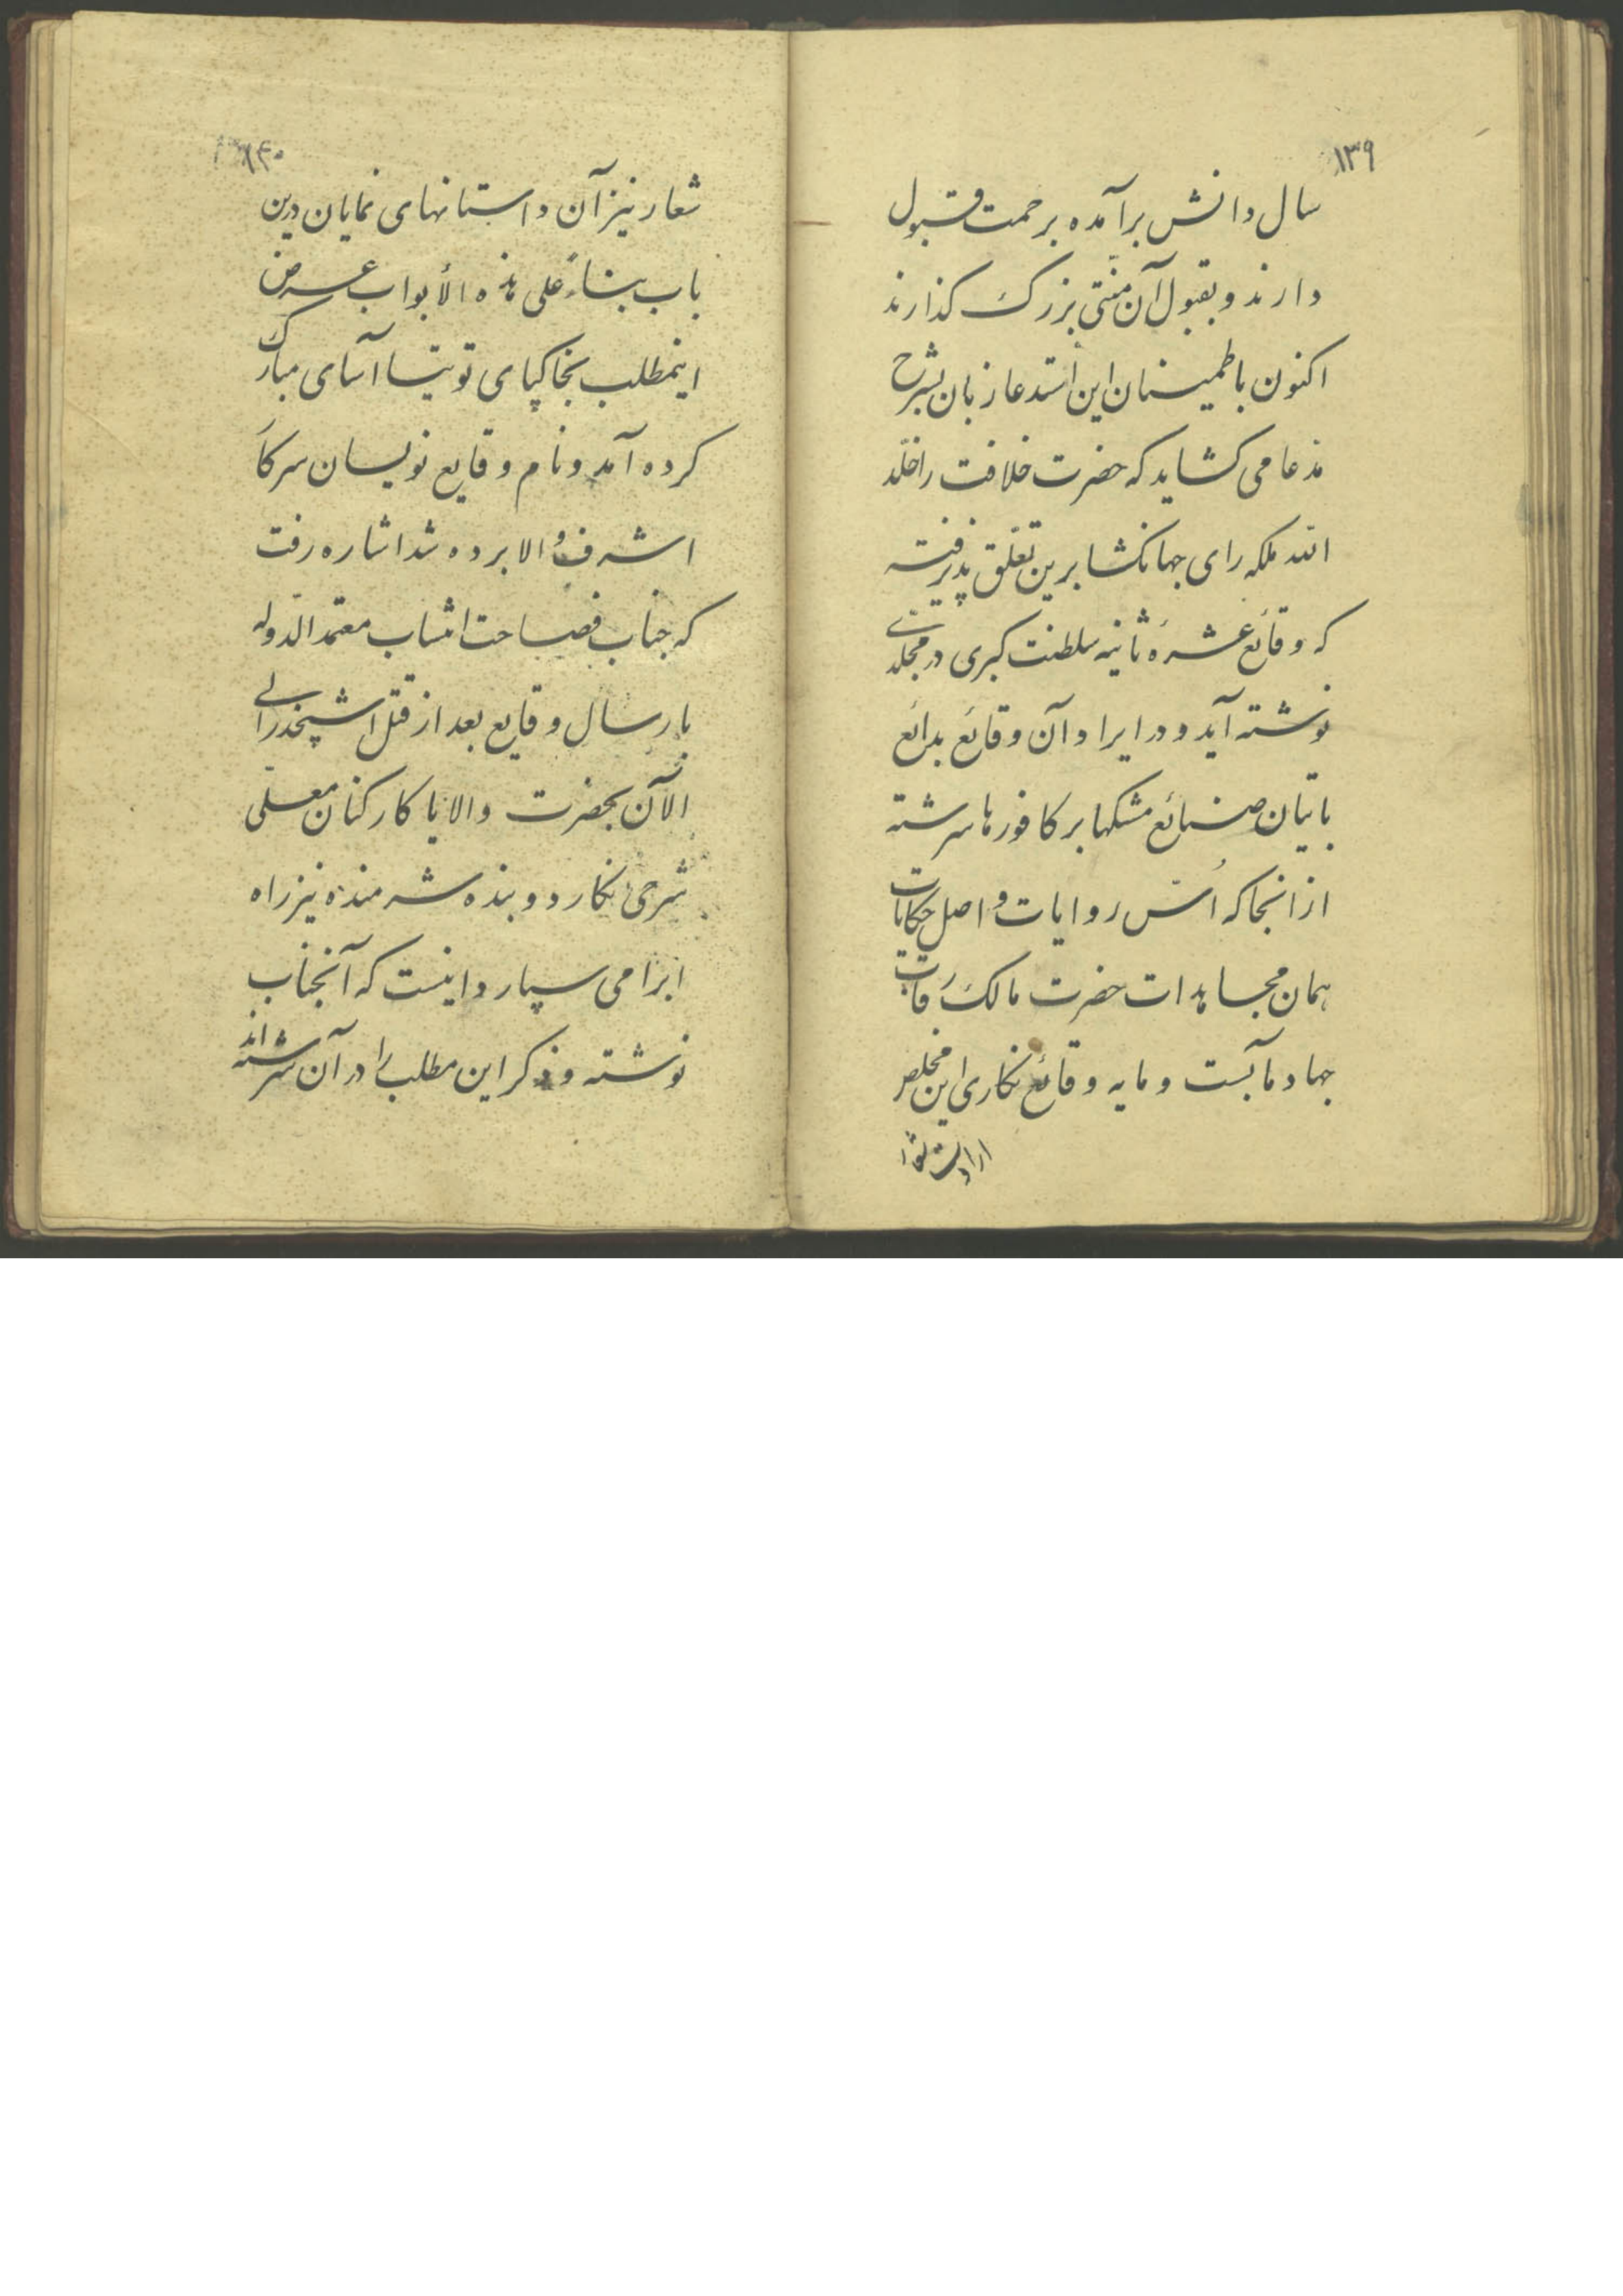 ۱۳۹
سال دانش برآمده برحمت قبول
دارند و بقبول آن منتی بزرگ گذارند
اکنون باطمینان این استدعا زبان بشرح
مدعا می گشاید که حضرت خلافت را خلّد
الله ملکه رای جهانگشا برین تعلّق پذیرفته
که وقائع عشرهٔ ثانیه سلطنت کبری در مجلدی
نوشته آید و در ایراد آن وقائع بدائع
باتیان صنائع مشکها بر کافورها سرشته
از انجا که اُسّ روایات و اصل حکایات
همان مجاهدات حضرت مالک رقاب
جهاد مآبست و مایه وقائع نگاری این مخلص
ارادت
۱۴۰
شعار نیز آن داستانهای نمایان درین
باب بناءً علی هذه الأبواب عرض
اینمطلب بخاکپای توتیا آسای مبارک
کرده آمد و نام وقایع نویسان سرکار
اشرف والا برده شد اشاره رفت
که جناب فصاحت انتساب معتمد الدوله
بارسال وقایع بعد از قتل اشپخدر الی
الآن بحضرت والا یا کارکنان معلّی
شرحی نگارد و بنده شرمنده نیز راه
ابرامی سپارد اینست که آنجناب
نوشته و ذکر این مطلب را در آن سرشته اند